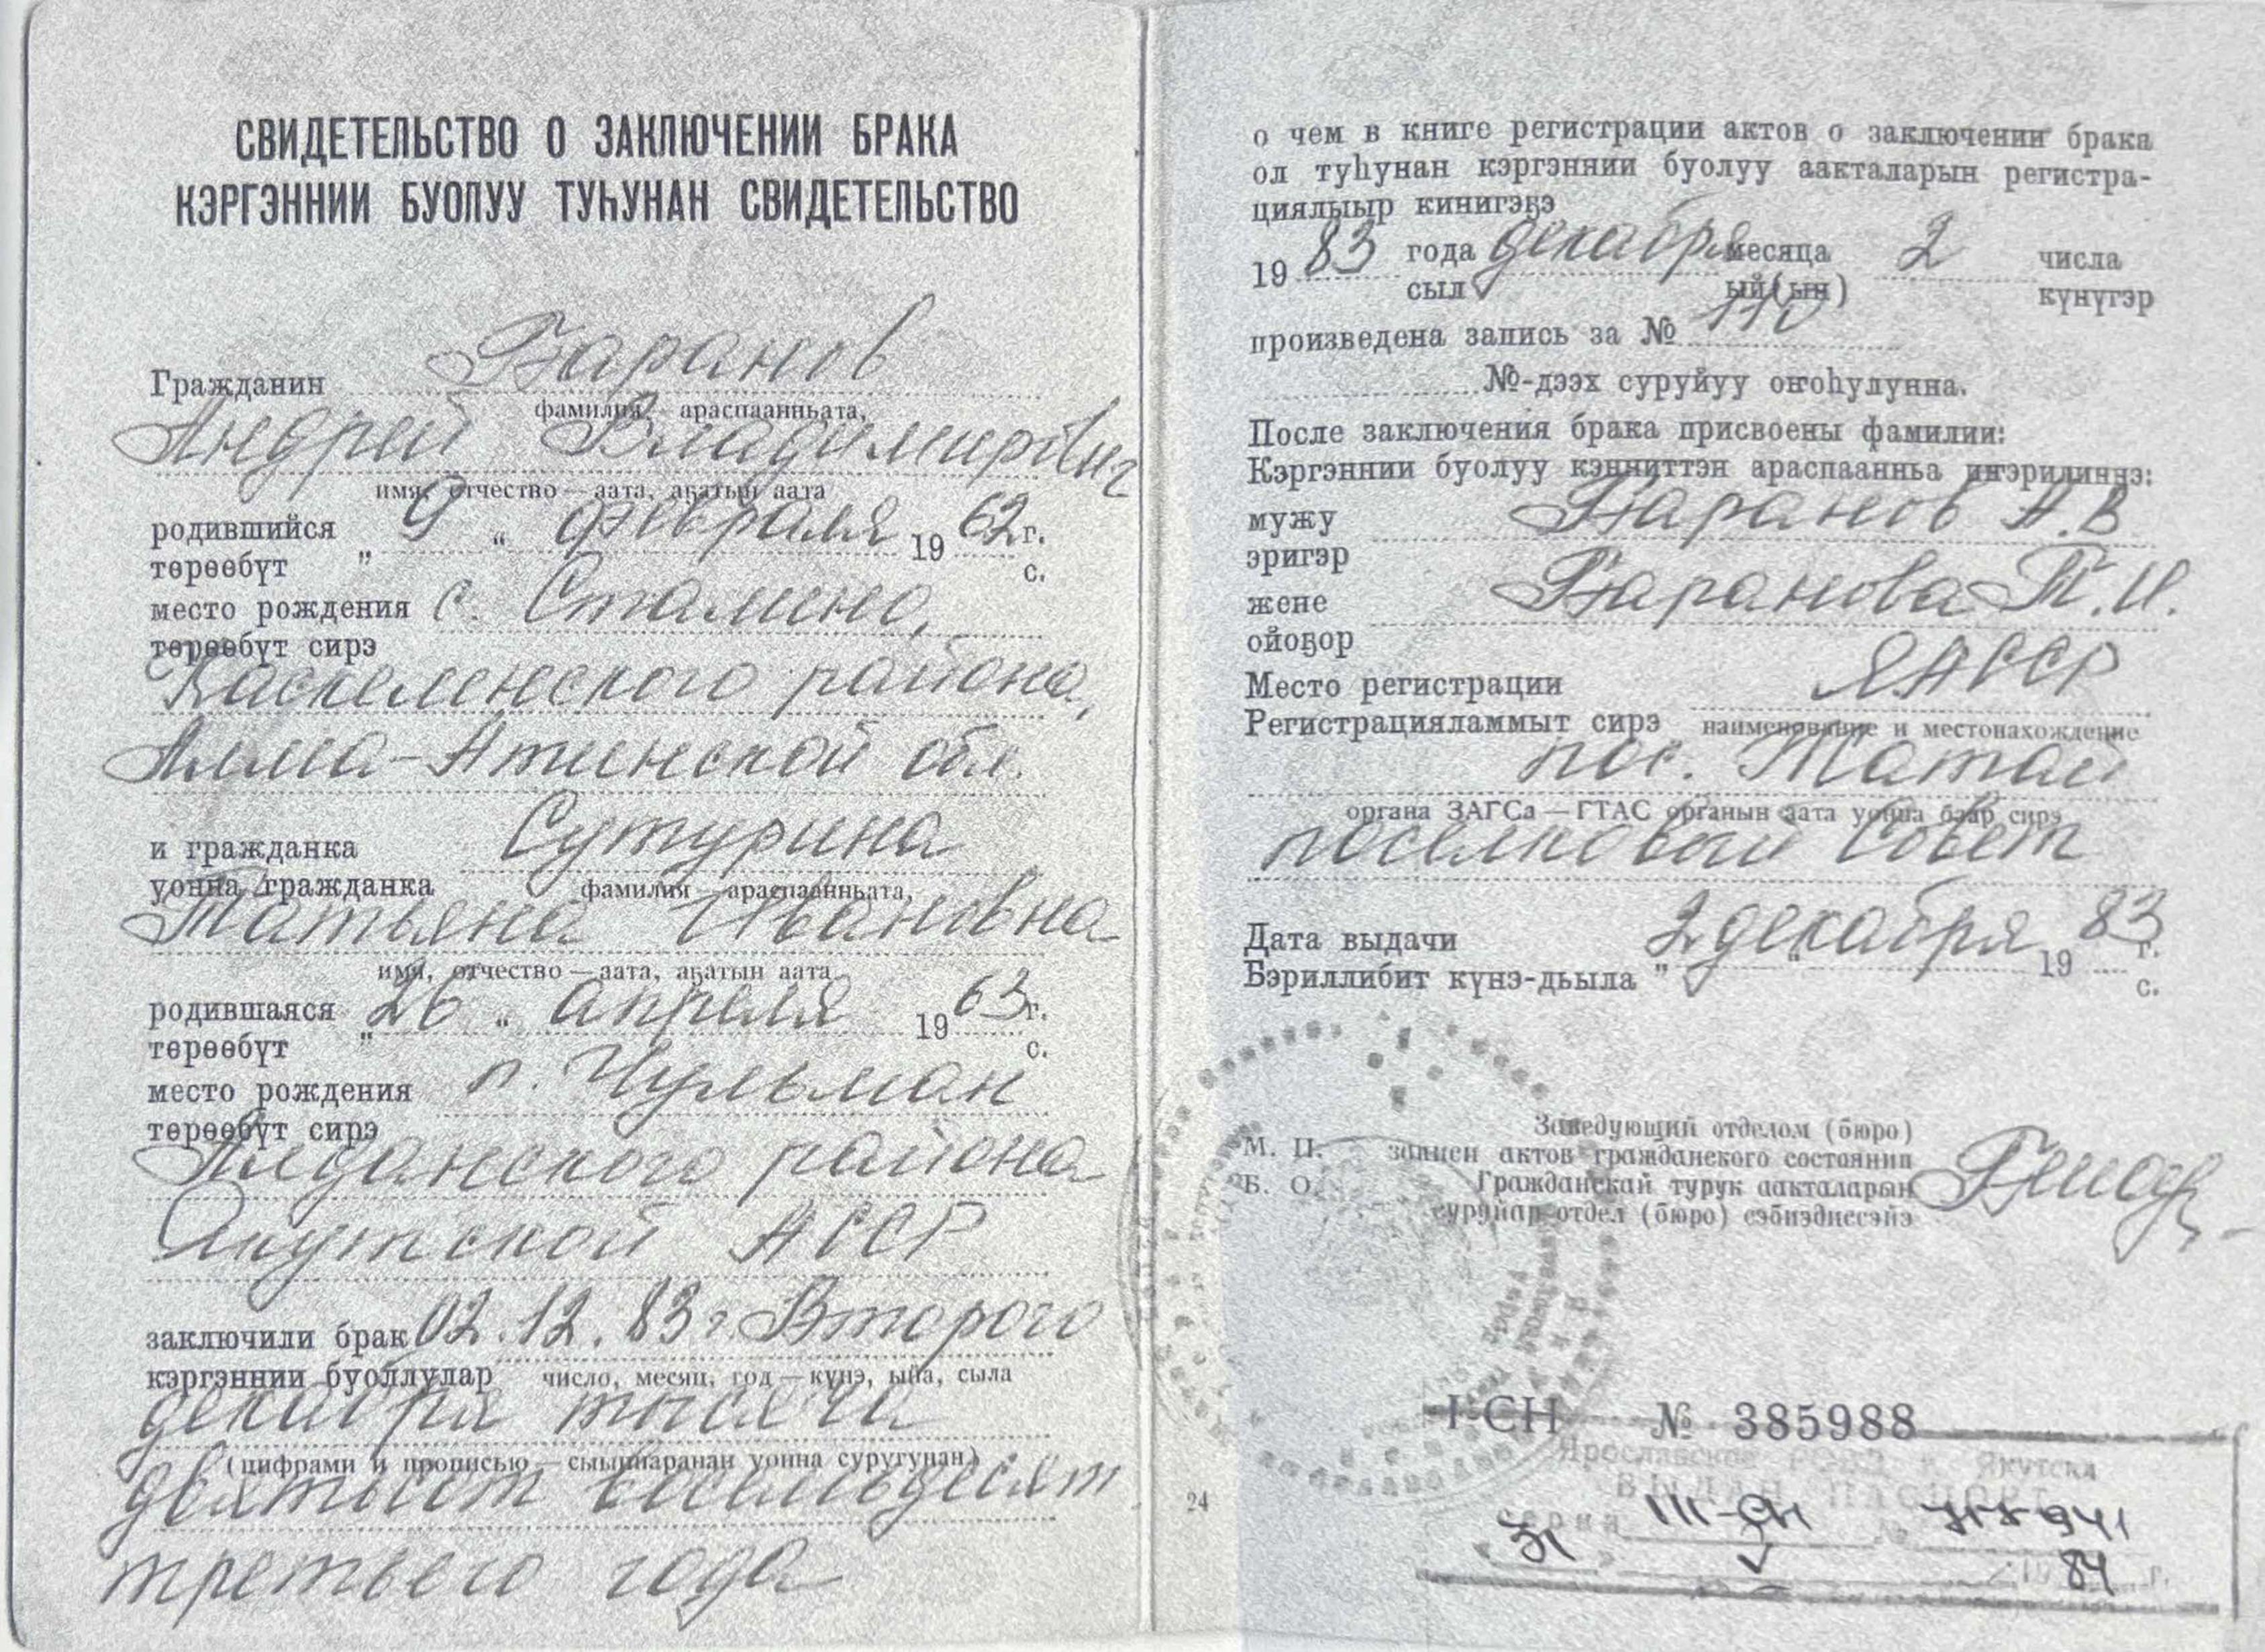 СВИДЕТЕЛЬСТВО О ЗАКЛЮЧЕНИИ БРАКА
КЭРГЭННИИ БУОЛУУ ТУҺУНАН СВИДЕТЕЛЬСТВО
Гражданин Баранов
фамилия араспаанньата,
Андрей Владимирович
имя, отчество — аата, аҕатын аата
родившийся „ 9 “ февраля 1962 г.
төрөөбүт с.
место рождения с. Стамено,
төрөөбүт сирэ
Каскеленского района,
Алма-Атинской обл.
и гражданка Сутурина
уонна гражданка фамилия — араспаанньата,
Татьяна Ивановна
имя, отчество — аата, аҕатын аата
родившаяся „ 26 “ апреля 1963 г.
төрөөбүт с.
место рождения п. Чульман
төрөөбүт сирэ
Алданского района
Якутской АССР
заключили брак 02.12.83 г. Второго
кэргэннии буоллулар число, месяц, год — күнэ, ыйа, сыла
декабря тысяча
(цифрами и прописью — сыыппаранан уонна суругунан)
девятьсот восемьдесят
третьего года
о чем в книге регистрации актов о заключении брака
ол туһунан кэргэннии буолуу аакталарын регистра-
циялыыр кинигэҕэ
1983 года декабря месяца 2 числа
сыл ый(ын) күнүгэр
произведена запись за № 110
№-дээх суруйуу оҥоһулунна.
После заключения брака присвоены фамилии:
Кэргэннии буолуу кэнниттэн араспаанньа иҥэрилиннэ:
мужу Баранов А.В
эригэр
жене Баранова Т.И.
ойоҕор
Место регистрации ЯАССР
Регистрацияламмыт сирэ наименование и местонахождение
пос. Жатай
органа ЗАГСа — ГТАС органын аата уонна баар сирэ
поселковый Совет
Дата выдачи 2 декабря 1983 г.
Бэриллибит күнэ-дьыла „ “ с.
Заведующий отделом (бюро)
М. П. записи актов гражданского состояния
Б. О. Гражданскай турук аакталарын
суруйар отдел (бюро) сэбиэдиссэйэ
I-СН № 385988
Ярославское РОВД г. Якутска
ВЫДАН ПАСПОРТ
серия III-СН №
84 г.
24